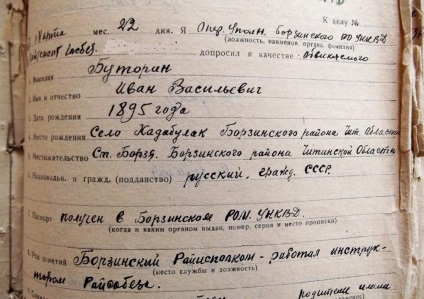 К делу №
марта мес. 22 дня. Я Опер. Уполн. Борзинского РО УНКВД
(должность, наименов. органа, фамилия)
допросил в качестве обвиняемого
1. Фамилия Буторин
2. Имя и отчество Иван Васильевич
3. Дата рождения 1895 года
4. Место рождения Село Кадабулак Борзинского района Чит. Области
5. Местожительство Ст. Борзя, Борзинского района Читинской Области
6. Национальн. и гражд. (подданство) русский, гражд. СССР.
7. Паспорт получен в Борзинском РОМ. УНКВД.
(когда и каким органом выдан, номер, серия и место прописки)
8. Род занятий Борзинский Райисполком - работал инструк-
(место службы и должность)
тором Райсобеза.
родители имели